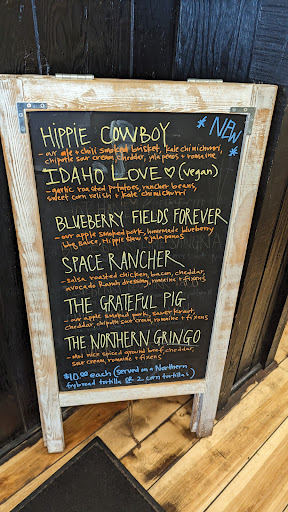 * NEW *
HIPPIE COWBOY
- our ale + chili smoked brisket, kale chimichurri,
chipotle sour cream, cheddar, jalapenos + romaine
IDAHO LOVE ♡ (vegan)
- garlic roasted potatoes, rancher beans,
sweet corn relish + kale chimichurri
BLUEBERRY FIELDS FOREVER
- our apple smoked pork, homemade blueberry
bbq sauce, Hippie slaw + jalapenos
SPACE RANCHER
- salsa roasted chicken, bacon, cheddar,
avocado Ranch dressing, romaine + fixens
THE GRATEFUL PIG
- our apple smoked pork, sauer kraut,
cheddar, chipotle sour cream, romaine + fixens
THE NORTHERN GRINGO
- nice spiced ground beef, cheddar,
sour cream, romaine + fixens
$10.00 each (served on a Northern
frybread tortilla OR 2 corn tortillas)